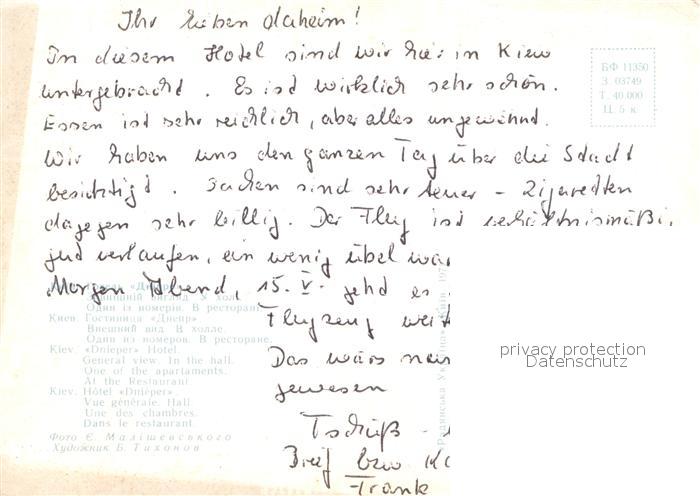 Ihr lieben daheim!
In diesem Hotel sind wir hier in Kiew
untergebracht. Es ist wirklich sehr schön.
Essen ist sehr reichlich, aber alles ungewohnt.
Wir haben uns den ganzen Tag über die Stadt
besichtigt. Sachen sind sehr teuer - Zigaretten
dagegen sehr billig. Der Flug ist verhältnismäßi
gut verlaufen, ein wenig übel war
Morgen Abend, 15. V. geht es
Flugzeug weit
Das wärs
gewesen
Tschüß -
Brief bzw
Frank
БФ 11350
З. 03749
Т. 40.000
Ц. 5 к.
Зовнішній вигляд. У холі.
Один із номерів. В ресторані.
Киев. Гостиница «Днепр»
Внешний вид. В холле.
Один из номеров. В ресторане.
Kiev. «Dnieper» Hotel.
General view. In the hall.
One of the apartaments.
At the Restaurant.
Kiev. Hôtel «Dniéper».
Vue générale. Hall.
Une des chambres.
Dans le restaurant.
Фото Є. Малішевського
Художник Б. Тихонов
privacy protection
Datenschutz